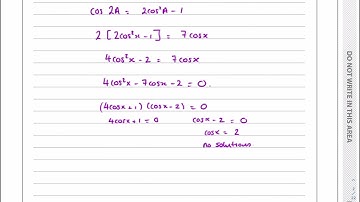 cos 2A = 2cos²A - 1
2 [2cos²x - 1] = 7cosx
4cos²x - 2 = 7cosx
4cos²x - 7cosx - 2 = 0.
(4cosx + 1) (cosx - 2) = 0
4cosx + 1 = 0 cosx - 2 = 0
cosx = 2
no solutions
DO NOT WRITE IN THIS AREA